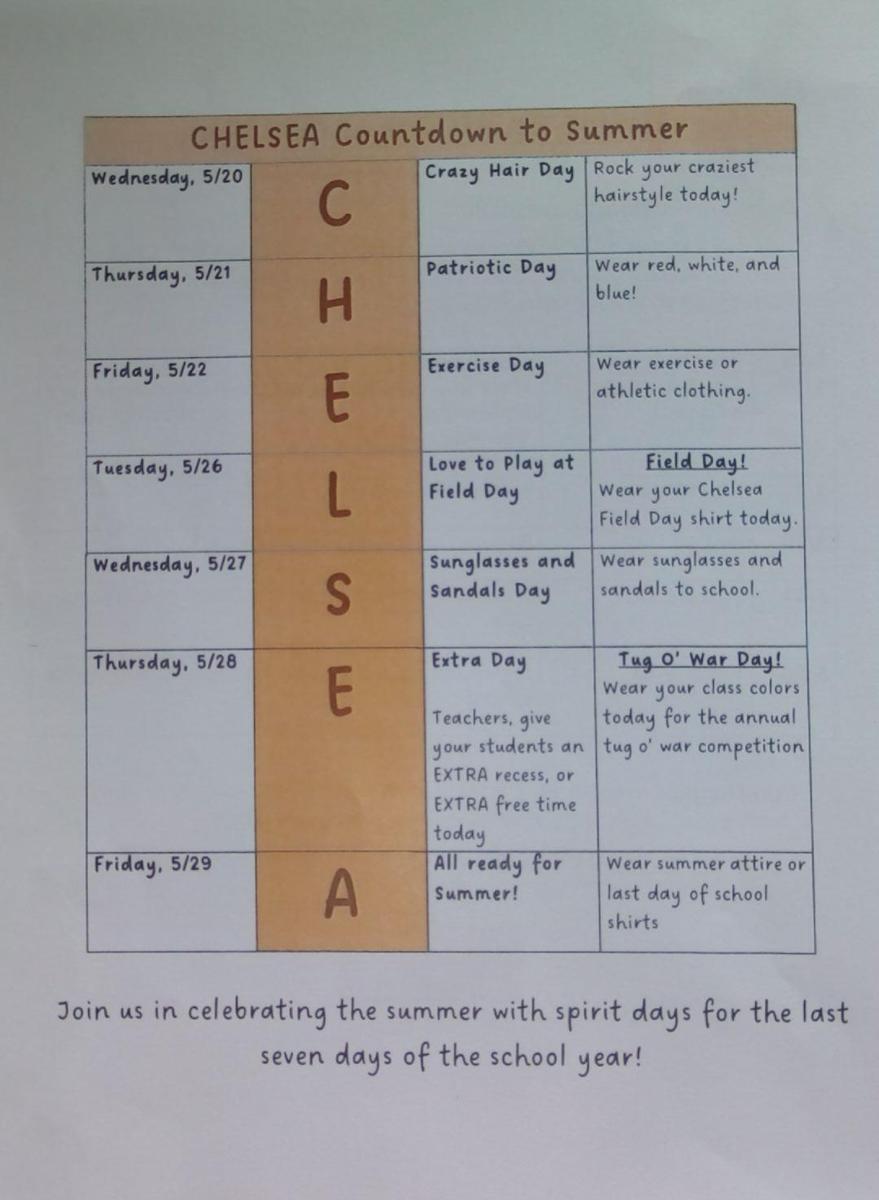 CHELSEA Countdown to Summer
Wednesday, 5/20
C
Crazy Hair Day
Rock your craziest
hairstyle today!
Thursday, 5/21
H
Patriotic Day
Wear red, white, and
blue!
Friday, 5/22
E
Exercise Day
Wear exercise or
athletic clothing.
Tuesday, 5/26
L
Love to Play at
Field Day
Field Day!
Wear your Chelsea
Field Day shirt today.
Wednesday, 5/27
S
Sunglasses and
Sandals Day
Wear sunglasses and
sandals to school.
Thursday, 5/28
E
Extra Day
Teachers, give
your students an
EXTRA recess, or
EXTRA free time
today
Tug O' War Day!
Wear your class colors
today for the annual
tug o' war competition
Friday, 5/29
A
All ready for
Summer!
Wear summer attire or
last day of school
shirts
Join us in celebrating the summer with spirit days for the last
seven days of the school year!